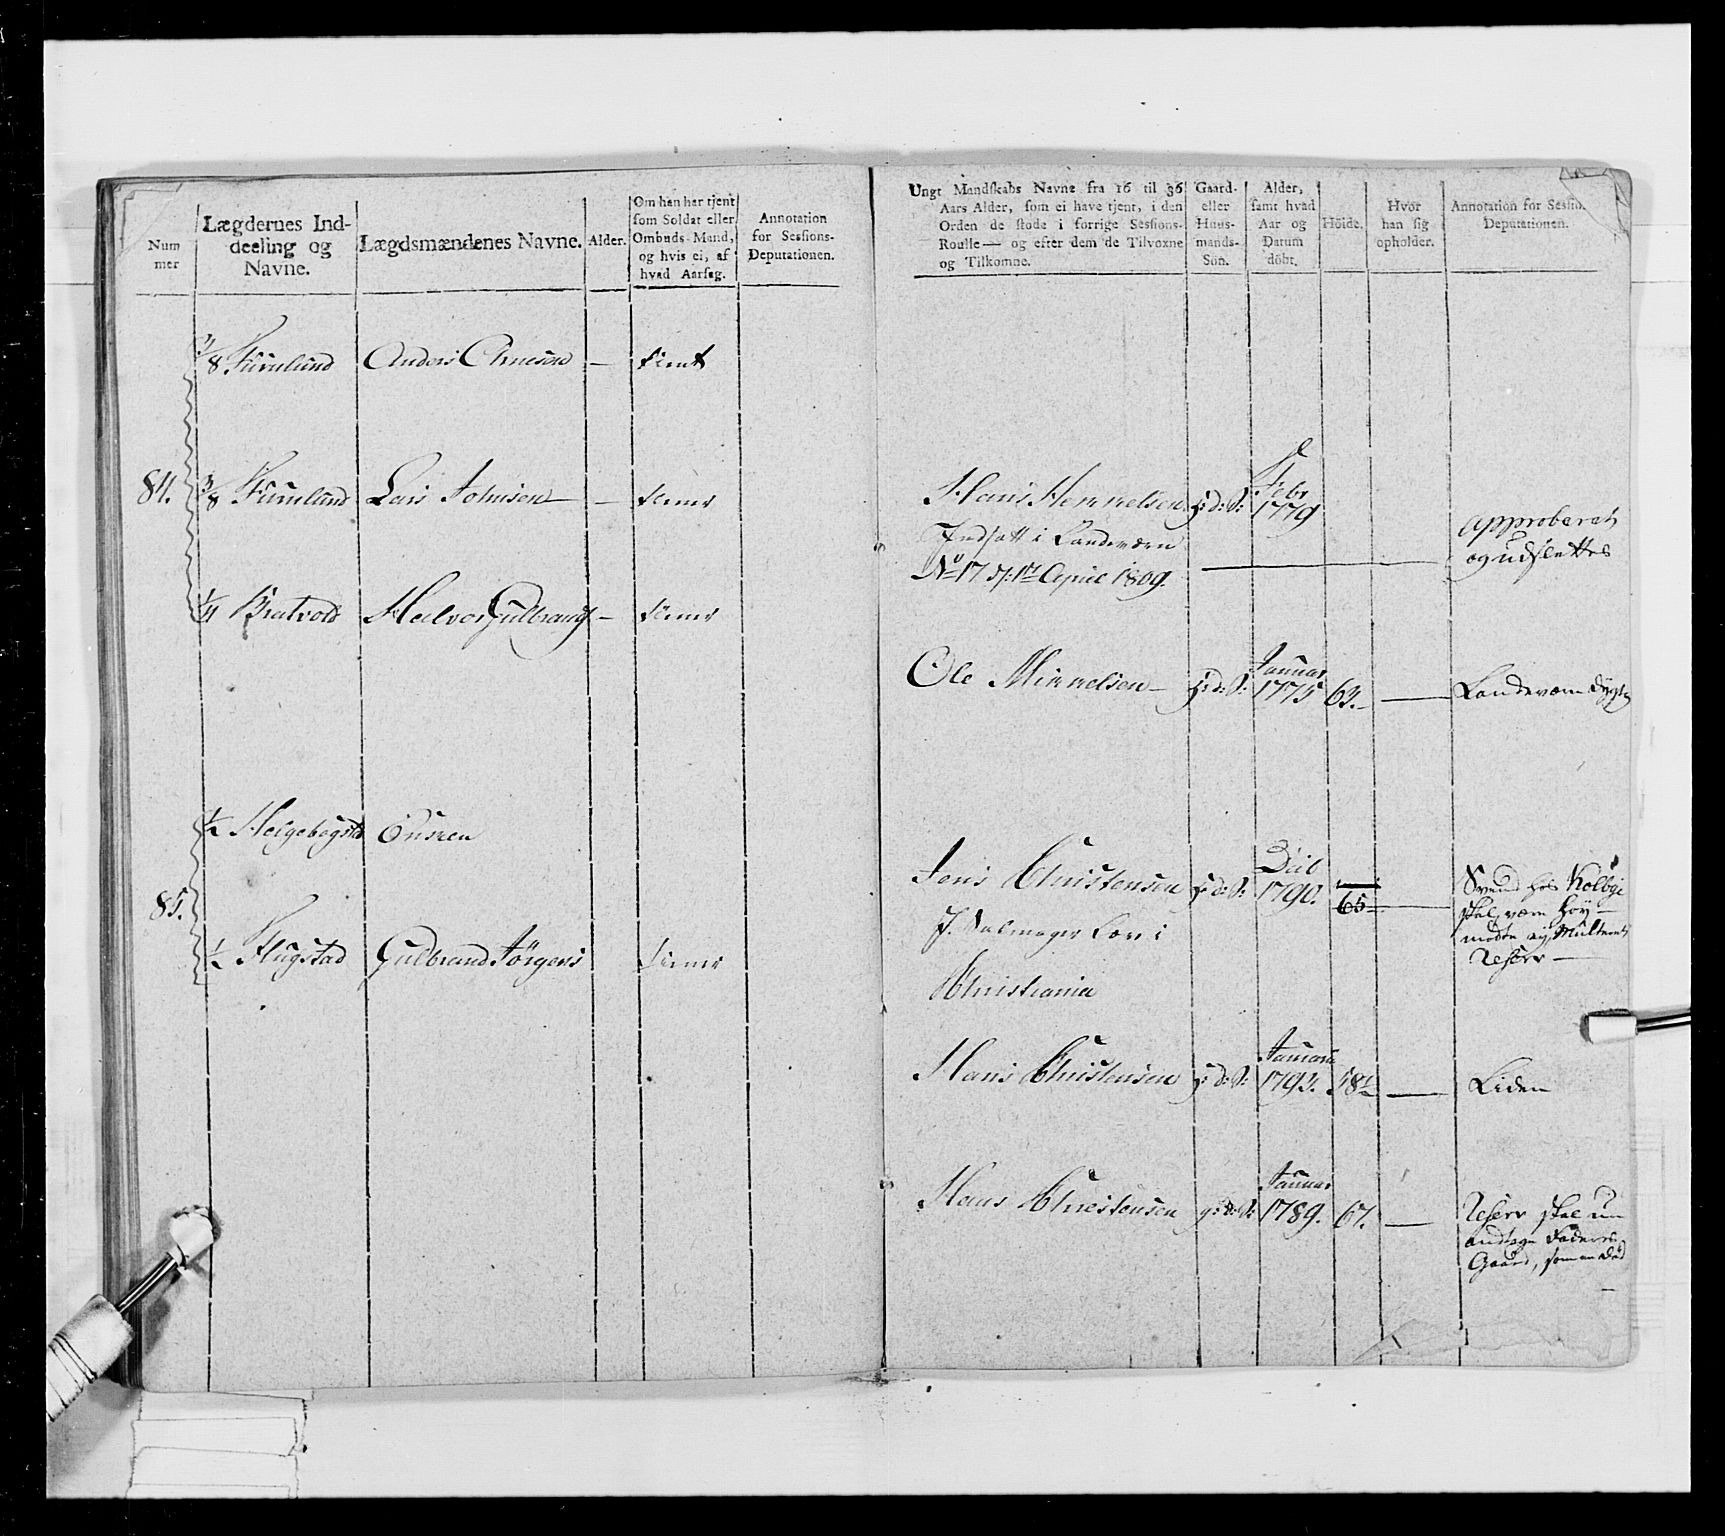 Num
mer
Lægdernes Ind-
deeling og
Navne.
Lægdsmændenes Navne.
Alder.
Om han har tjent
som Soldat eller
Ombuds-Mand,
og hvis ei, af
hvad Aarsag.
Annotation
for Sessions-
Deputationen.
3/8 Furulund Anders Arnesen — tient
84. 3/8 Furulund Lars Johnsen — tiener
1/4 Bratvold Halvor Gulbrands —
1/2 Helgebogstad Enken
85.
1/2 Flugstad Gulbrand Jørgens
Ungt Mandskabs Navne fra 16 til 36
Aars Alder, som ei have tjent, i den
Orden de stode i forrige Sessions-
Roulle — og efter dem de Tilvoxne
og Tilkomne.
Gaard-
eller
Huus-
mands-
Sön.
Alder,
samt hvad
Aar og
Datum
döbt.
Höide.
Hvor
han sig
opholder.
Annotation for Session
Deputationen.
Hans Mennelsen h: d: S: Febr 1779
Indsatt i Landeværn
No 17 d: 1te April 1809.
Approberet
og udslettes
Ole Minnelsen — h: d: S: Januar 1775 63. — Landeværn
Jens Christensen h: d: S: 1790. 65 —
Lære i
Christiania
Svend hos
skal være Høy —
mødte ej, Multeret
Reserv —
Hans Christensen h: d: S: Januari 1793. 58 1/2 — Liden
Hans Christensen g: d: S: Januar 1789. 67. —
Reserv skal
antage Faderens
Gaard, som er Død